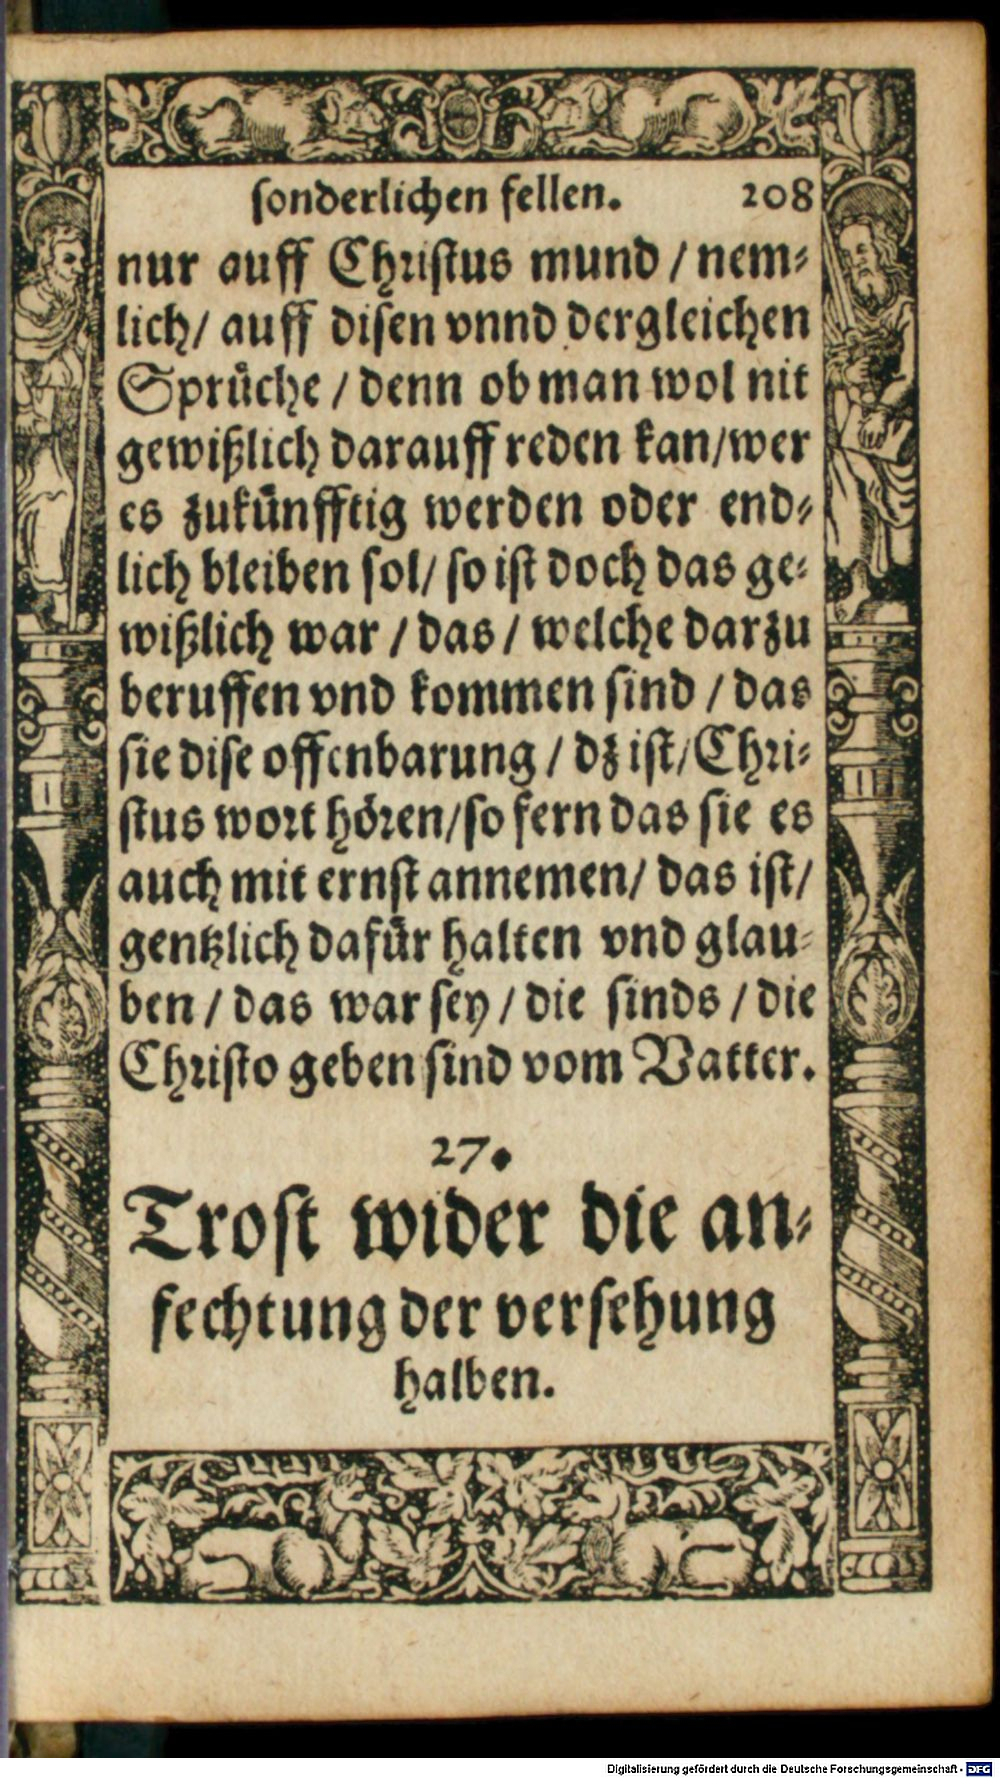 sonderlichen fellen. 208
nur auff Christus mund / nem⸗
lich/ auff disen vnnd dergleichen
Sprüche / denn ob man wol nit
gewißlich darauff reden kan/wer
es zukünfftig werden oder end⸗
lich bleiben sol/ so ist doch das ge⸗
wißlich war / das / welche darzu
beruffen vnd kommen sind / das
sie dise offenbarung / dz ist/Chri⸗
stus wort hören/so fern das sie es
auch mit ernst annemen/ das ist/
gentzlich dafür halten vnd glau⸗
ben / das war sey / die sinds / die
Christo geben sind vom Vatter.
27.
Trost wider die an⸗
fechtung der versehung
halben.
Digitalisierung gefördert durch die Deutsche Forschungsgemeinschaft - DFG